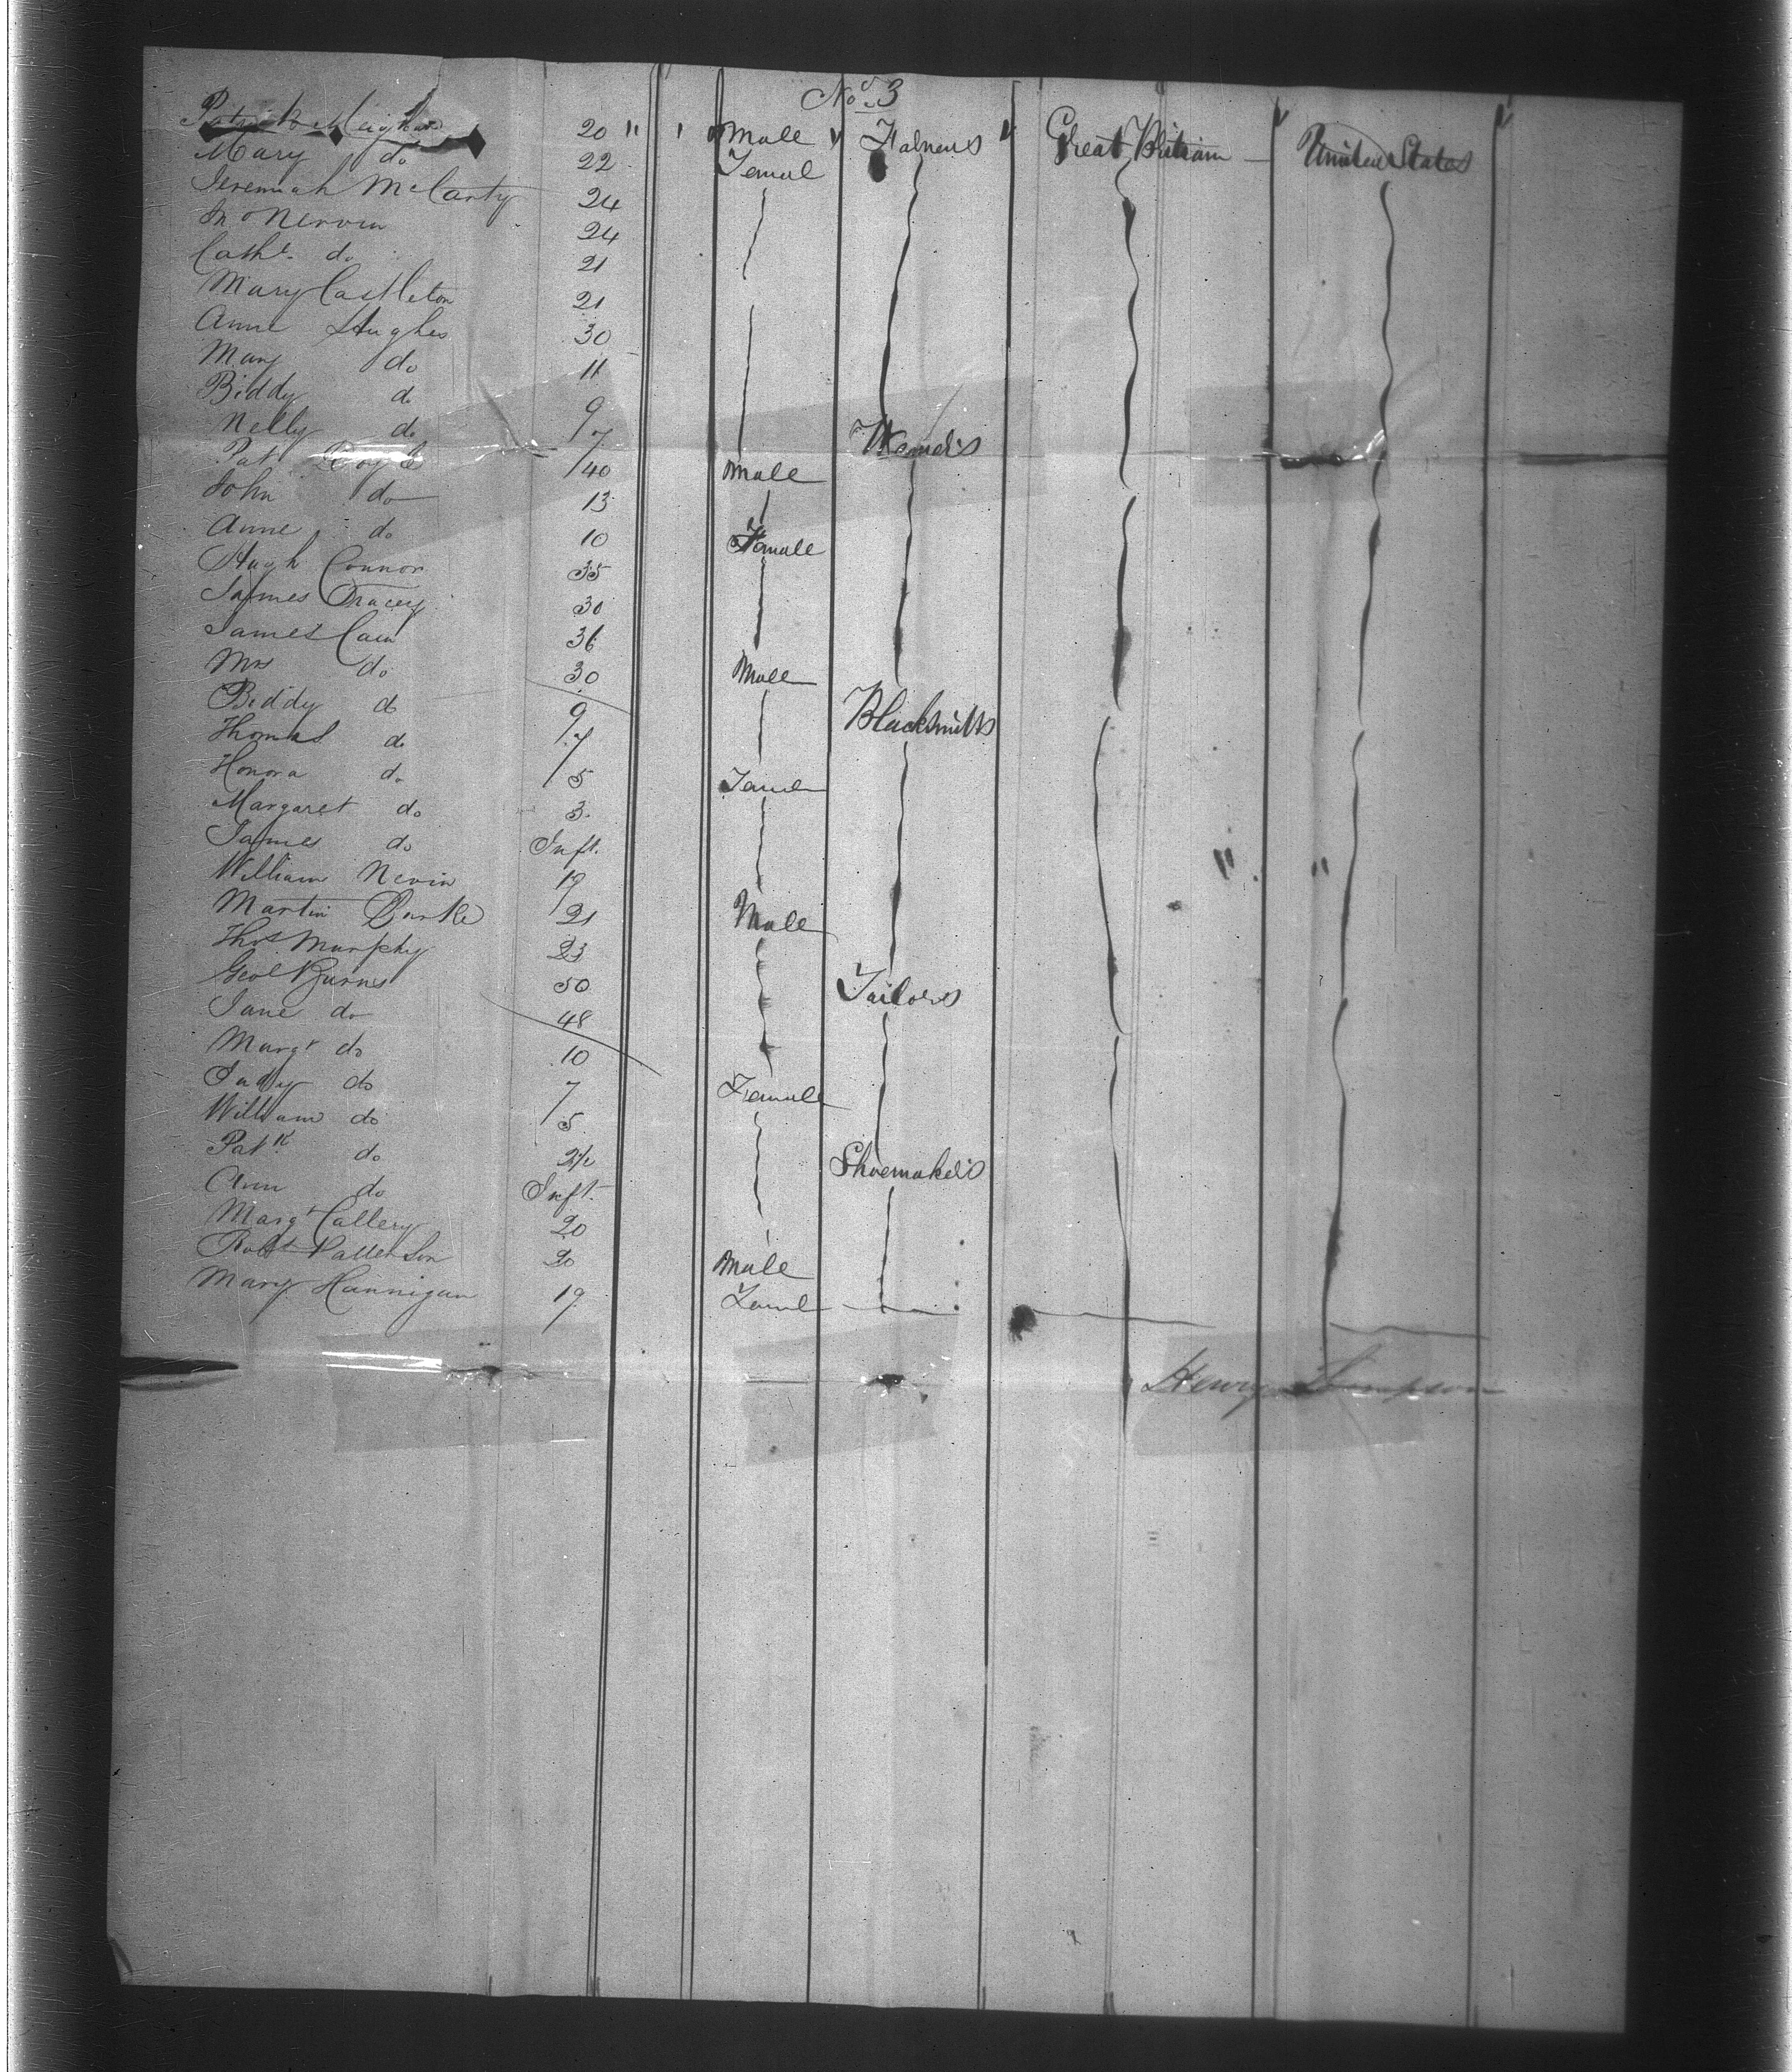 No. 3
Patrick Meighan 20 " " Male " Farmers " Great Britain — United States
Mary do 22 Femal
Jeremiah McCarty 24
Jno Nervin 24
Cathe. do 21
Mary Castleton 21
Anne Hughes 30
Mary do 11
Biddy do 9
Nelly do 7
Pat Doyle 40 Male
John do 13
Anne do 10 Female
Hugh Connor 35
James Tracey 30
James Cain 36
Mrs do 30 Male
Biddy do 9 Blacksmiths
Thomas do 7
Honora do 5 Femel
Margaret do 3
James do Inft.
William Nevin 19
Martin Burke 21 Male
Thos Murphy 23
Geoe Burns 50 Tailors
Jane do 48
Margt do 10
Judy do 7 Female
William do 5
Patk. do 2½ Shoemakers
Ann do Inft.
Margt Callery 20
Robt Patterson 20 Male
Mary Hannigan 19 Femel
Henry Simpson